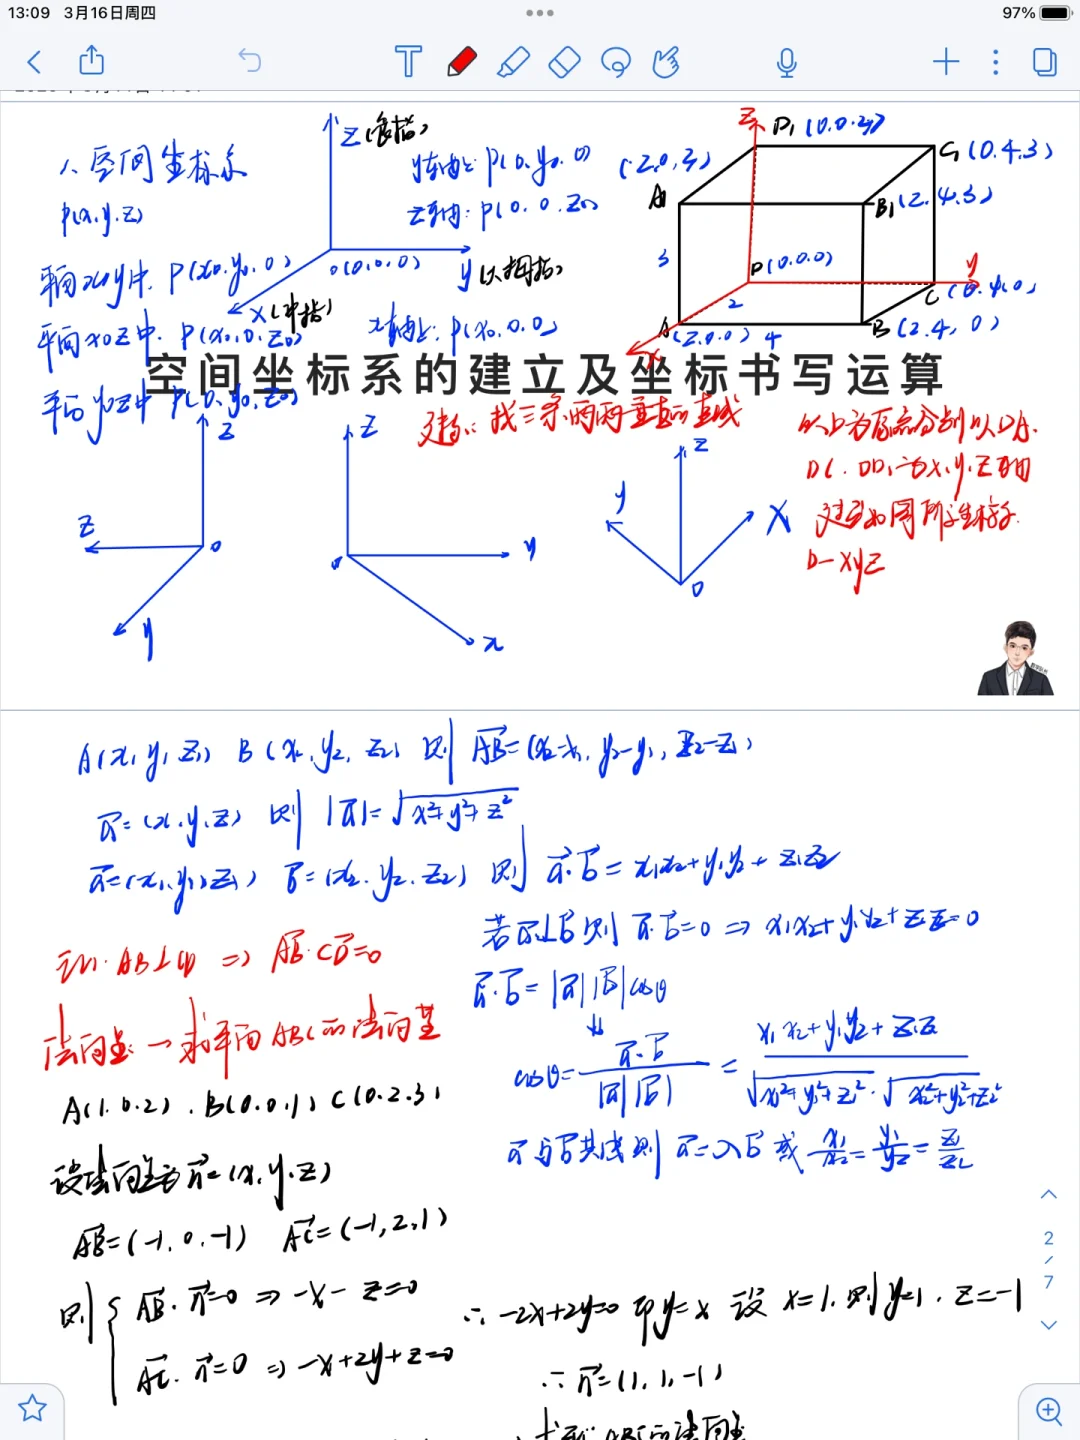 13:09 3月16日周四
97%
一、空间坐标系
P(x.y.z)
平面xoy中. P(x₀.y₀.0)
平面xoz中. P(x₀.0.z₀)
平面yoz中 P(0.y₀.z₀)
z(食指)
o(0.0.0)
y(大拇指)
x(中指)
y轴上: P(0.y₀.0)
z轴: P(0.0.z₀)
x轴上: P(x₀.0.0)
z
D₁(0.0.3)
(2.0.3)
A₁
C₁(0.4.3)
B₁(2.4.3)
3
D(0.0.0)
y
2
C(0.4.0)
A(2.0.0) 4
B(2.4,0)
x
空间坐标系的建立及坐标书写运算
建系: 找三条两两垂直的直线
以D为原点分别以DA.
DC.DD₁为x.y.z轴
建立如图所示坐标系
D-xyz
z
z
o
y
z
o
y
x
z
y
x
o
A(x₁y₁z₁) B(x₂.y₂.z₂) 则 AB=(x₂-x₁,y₂-y₁,z₂-z₁)
a=(x.y.z) 则 |a|=√x²+y²+z²
a=(x₁,y₁,z₁) b=(x₂.y₂.z₂) 则 a·b=x₁x₂+y₁y₂+z₁z₂
若a⊥b则 a·b=0 ⇒ x₁x₂+y₁y₂+z₁z₂=0
证明:AB⊥CD ⇒ AB·CD=0
a·b=|a||b|cosθ
法向量→求平面ABC的法向量
cosθ=a·b/|a||b|=x₁x₂+y₁y₂+z₁z₂/√x₁²+y₁²+z₁²·√x₂²+y₂²+z₂²
A(1.0.2).B(0.0.1) C(0.2.3)
a与b共线则 a=λb 或 x₁/x₂=y₁/y₂=z₁/z₂
设法向量为n=(x.y.z)
AB=(-1.0.-1) AC=(-1,2,1)
则{AB·n=0 ⇒ -x-z=0
AC·n=0 ⇒ -x+2y+z=0
∴ -2x+2y=0 即y=x 设 x=1.则y=1.z=-1
∴ n=(1,1,-1)
2
/
7